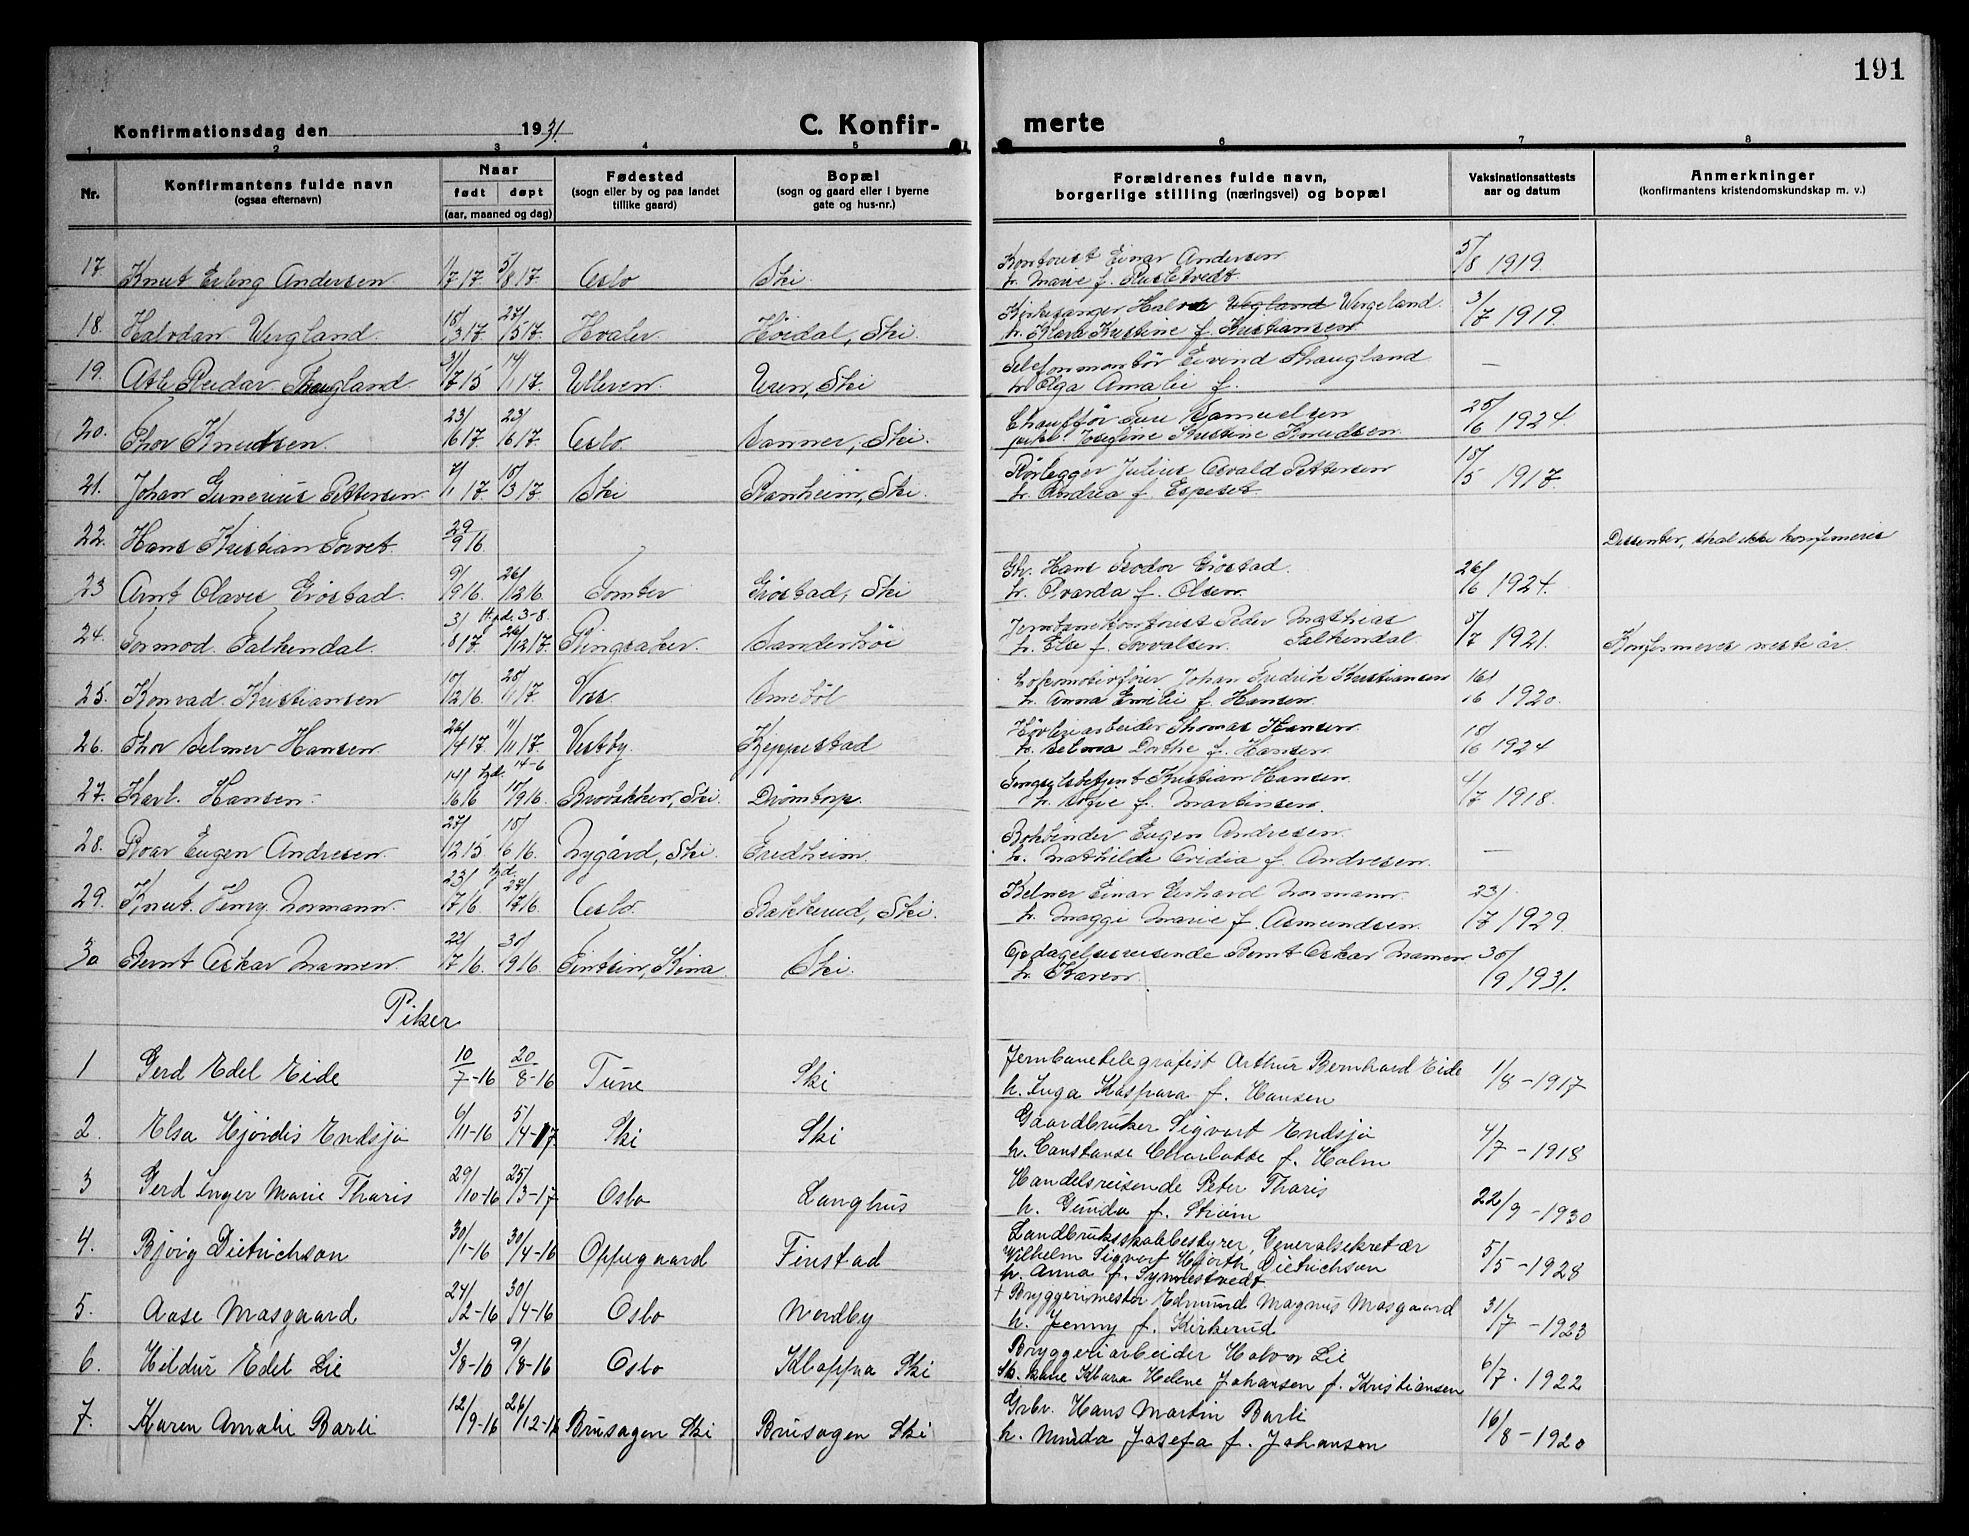 191
Konfirmationsdag den 1931.
C. Konfir-
merte
1 2 3 4 5 6 7 8
Nr.
Konfirmantens fulde navn
(ogsaa efternavn)
Naar
født døpt
(aar, maaned og dag)
Fødested
(sogn eller by og paa landet
tillike gaard)
Bopæl
(sogn og gaard eller i byerne
gate og hus-nr.)
Forældrenes fulde navn,
borgerlige stilling (næringsvei) og bopæl
Vaksinationsattests
aar og datum
Anmerkninger
(konfirmantens kristendomskundskap m. v.)
17 Knut Erling Andersen 1/7 17 5/8 17 Oslo Ski. Kontorist Einar Andersen 5/8 1919.
h. Marie f.
18. Halvdan Wergland. 18/3 17 27/5 17. Hvaler. Høidal, Ski. Kirkesanger Halvor Wegland Wergeland. 3/7 1919.
h. Klara Kristine f. Kristiansen
19. Atle Reidar Thaugland. 31/7 15 14/1 17. Ulleren. Uren, Ski Telefonmontør Eivind Thaugland —
h. Olga Amalie f.
20. Thor Knudsen. 23/6 17 23/6 17. Oslo. Sanner, Ski. Chauffør Ture Samuelsen 25/6 1924.
pike Josefine Kristine Knudsen.
21. Johan Gunerius Pettersen 7/1 17 18/3 17 Ski Ranheim, Ski. Rørlegger Julius Osvald Pettersen 18/5 1917.
h. Andrea f. Espeset.
22. Hans Kristian Torvet. 29/9 16. Dissenter, skal ikke konfirmeres
23 Arnt Olaves Grøstad. 9/9 16. 26/12 16. Tomter Grøstad, Ski Gbr. Hans Teodor Grøstad. 26/6 1924.
h. Alvarda f. Olsen.
24. Tormod. Falkendal. 3/8 17 Hjd. 3-8. 26/12 17. Ringsaker. Sanderhøi Jernbanekontorist Peder Mathias 5/7 1921. Konfirmeres neste år.
h. Else f. Torvalsen. Falkendal.
25. Konrad. Kristiansen 10/12 16 28/1 17. Vos. Smebøl Lokomotivfører Johan Fredrik Kristiansen 16/6 1920.
h. Anna Emilie f. Hansen.
26. Thor Selmer Hansen 26/4 17. 11/11 17. Vestby. Keppestad Høvleriarbeider Thomas Hansen. 18/6 1924
h. Selma Dorthe f. Hansen.
27. Karl. Hansen. 14/6 16 hjd. 14-6 17/9 16. Drømtorp. Fengselsbetjent Kristian Hansen. 4/7 1918.
h. Signe f. Martinsen.
28. Roar Eugen Andresen. 27/12 15 18/6 16. Nygård, Ski. Fredheim. Bokbinder Eugen Andresen. —
h. Mathilde Ovidia f. Andresen.
29. Knut. Henry. Normann. 23/7 16. hjd. 27/7 16. Oslo. Bakkerud, Ski. Kelner Einar Gerhard Normann. 23/7 1929
h. Maggi Marie f. Asmundsen.
30 Bernt Oskar Namen. 22/7 16. 30/9 16. Tintsin, Kina. Ski. Opdagelsesreisende Bernt Oskar Namen 30/9 1931.
h. Karen.
Piker
1 Gerd Edel Eide 10/7-16 20/8-16 Tune Ski Jernbanetelegrafist Arthur Bernhard Eide 1/8-1917
h. Inga Kaspara f. Hansen
2. Elsa Hjørdis Endsjø 6/11-16 5/4-17 Ski Ski Gaardbruker Sigvart Endsjø 4/7-1918
h. Constanse Charlotte f. Holm
3 Gerd Inger Marie Tharis 29/10-16 25/3-17 Oslo Langhus Handelsreisende Peter Tharis 22/9-1930
h. Gunda f. Strøm
4. Bjørg Dietrichson 30/1-16 30/4-16 Oppegaard Finstad Landbruksskolebestyrer, Generalsekretær 5/5-1928
Wilhelm Sigvart Hjorth Dietrichson
h. Anna f. Synnestvedt
5. Aase Mosgaard 24/2-16 30/4-16 Oslo Nordby + Bryggerimester Edmund Magnus Mosgaard 31/7-1923
h. Jenny f. Kirkerud
6. Hildur Edel Lie 3/8-16 9/8-16 Oslo Kloppa Ski Bryggeriarbeider Halvor Lie 6/7. 1922
Sk. kone Klara Helene Johansen f. Kristiansen
7. Karen Amalie Barli 12/9-16 26/12-16 Brusagen Ski Brusagen Ski Grbr. Hans Martin Barli 16/8-1920
h. Minda Josefa f. Johansen